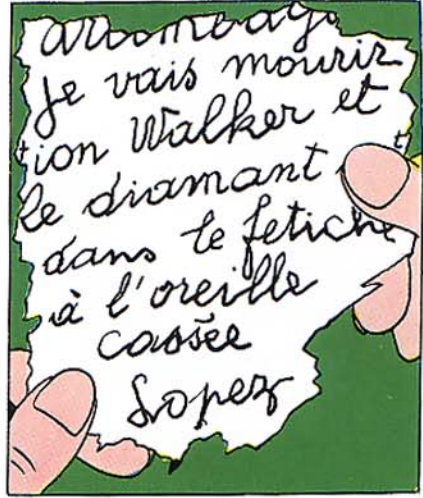 Je vais mourir
tion Walker et
le diamant
dans le fetiche
à l'oreille
cassée
Lopez